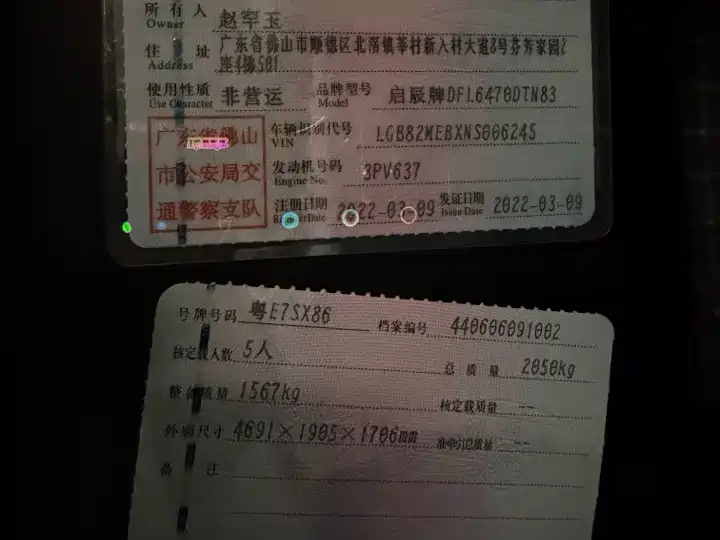 所有人
Owner
赵罕玉
住址
Address
广东省佛山市顺德区北滘镇莘村新入村大道8号芬芳家园2
座4梯501
使用性质
Use Character
非营运
品牌型号
Model
启辰牌DFL6470DTN83
广东省佛山
市公安局交
通警察支队
车辆识别代号
VIN
LGB82MEBXNS006245
发动机号码
Engine No.
3PV637
注册日期
Register Date
2022-03-09
发证日期
Issue Date
2022-03-09
号牌号码
粤E7SX86
档案编号
440606091002
核定载人数
5人
总质量
2050kg
整备质量
1567kg
核定载质量
--
外廓尺寸
4691×1905×1706mm
准牵引总质量
--
备注